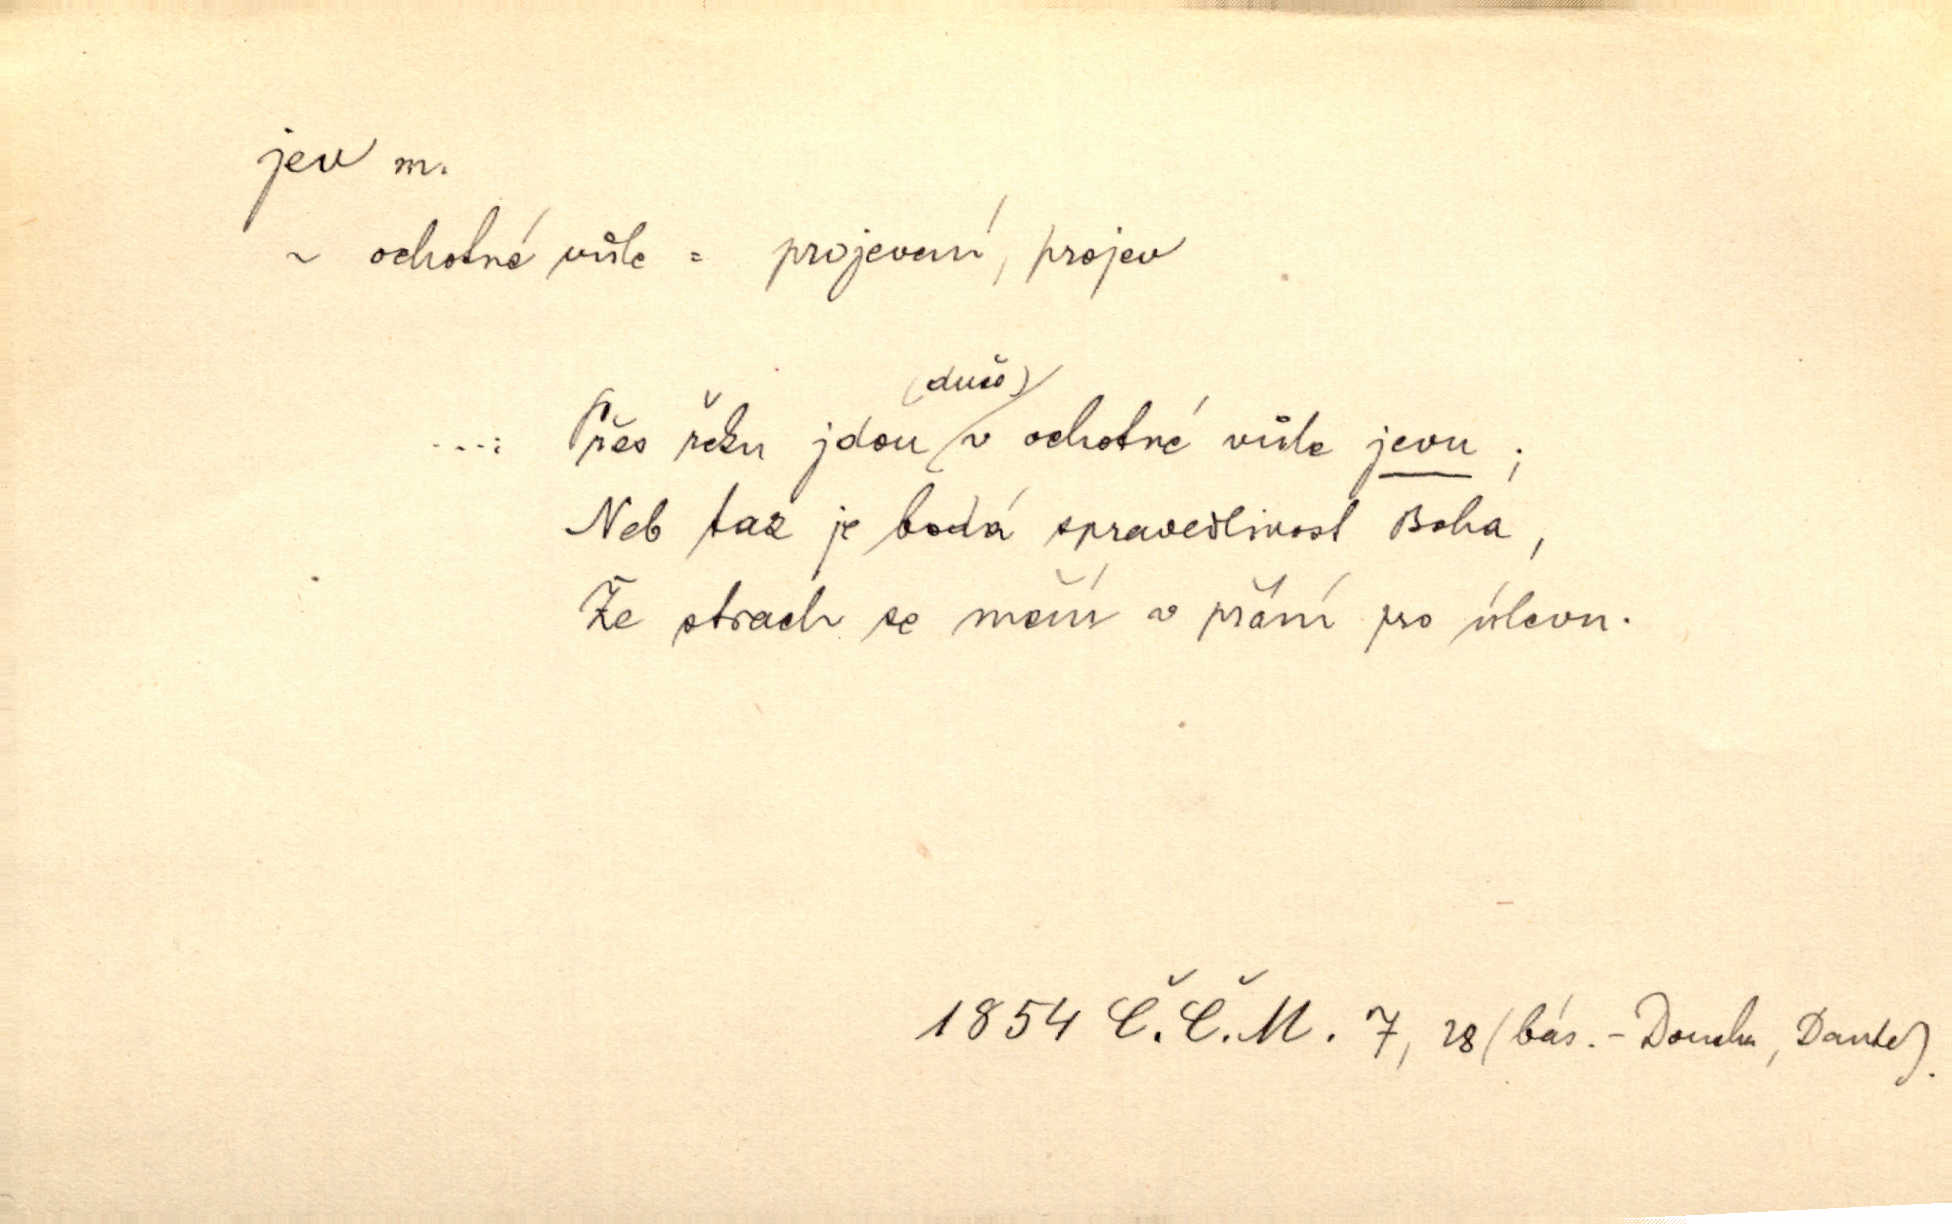 jev m.
~ ochotné vůle = projevení, projev
(duše)
...: Přes řeku jdou v ochotné vůle jevu ;
Neb tak je bodá spravedlivost Boha,
Že strach se mění v přání pro úlevu.
1854 Č.Č.M. 7, 28 (bás. - Doucha, Dante).